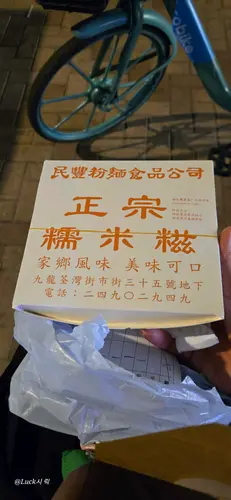 民豐粉麵食品公司
正宗
糯米糍
家鄉風味 美味可口
九龍荃灣街市街三十五號地下
電話：二四九〇二九四九
@Luck시릭